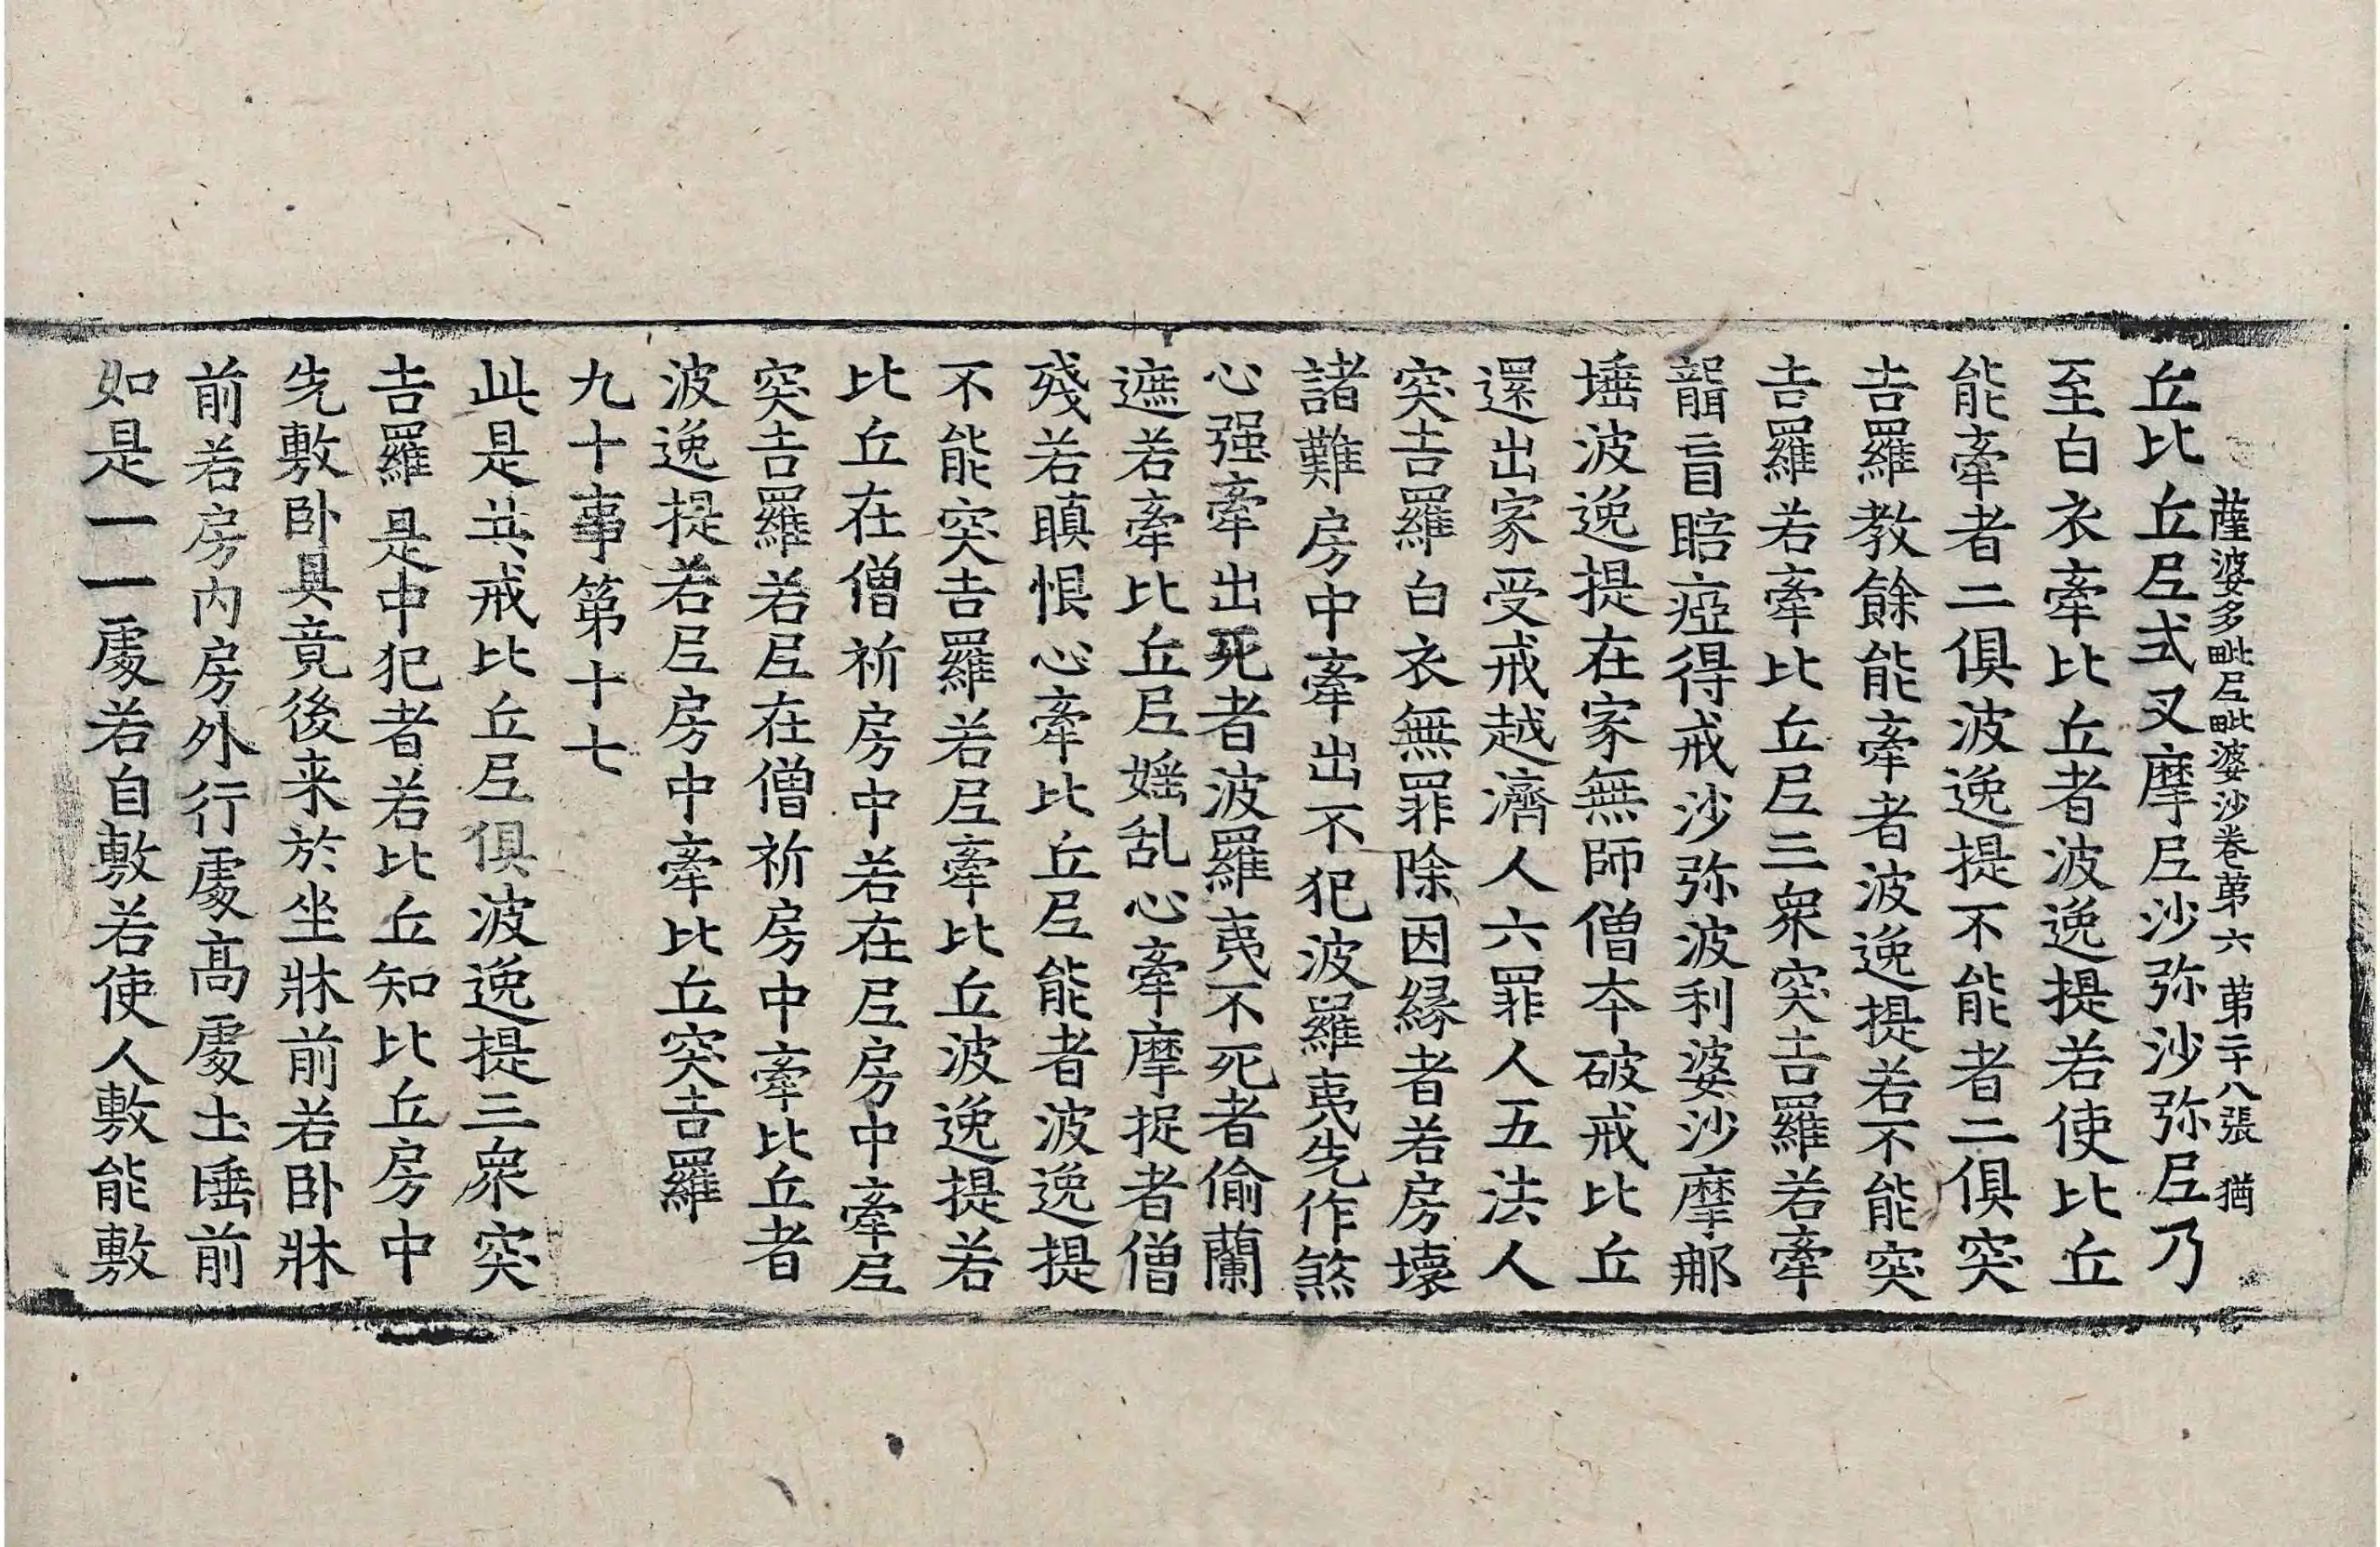 薩婆多毗尼毗婆沙卷第六 第二十八張 猶
丘比丘尼式叉摩尼沙弥沙弥尼乃
至白衣牽比丘者波逸提若使比丘
能牽者二俱波逸提不能者二俱突
吉羅教餘能牽者波逸提若不能突
吉羅若牽比丘尼三衆突吉羅若牽
聾盲瞎瘂得戒沙弥波利婆沙摩那
埵波逸提在家無師僧夲破戒比丘
還出家受戒越濟人六罪人五法人
突吉羅白衣無罪除因縁者若房壊
諸難房中牽出不犯波羅夷先作煞
心强牽出死者波羅夷不死者偷蘭
遮若牽比丘尼婬乱心牽摩捉者僧
殘若瞋恨心牽比丘尼能者波逸提
不能突吉羅若尼牽比丘波逸提若
比丘在僧祈房中若在尼房中牽尼
突吉羅若尼在僧祈房中牽比丘者
波逸提若尼房中牽比丘突吉羅
九十事第十七
此是共戒比丘尼俱波逸提三衆突
吉羅是中犯者若比丘知比丘房中
先敷卧具竟後来於坐牀前若卧牀
前若房内房外行處高處土埵前
如是一一處若自敷若使人敷能敷